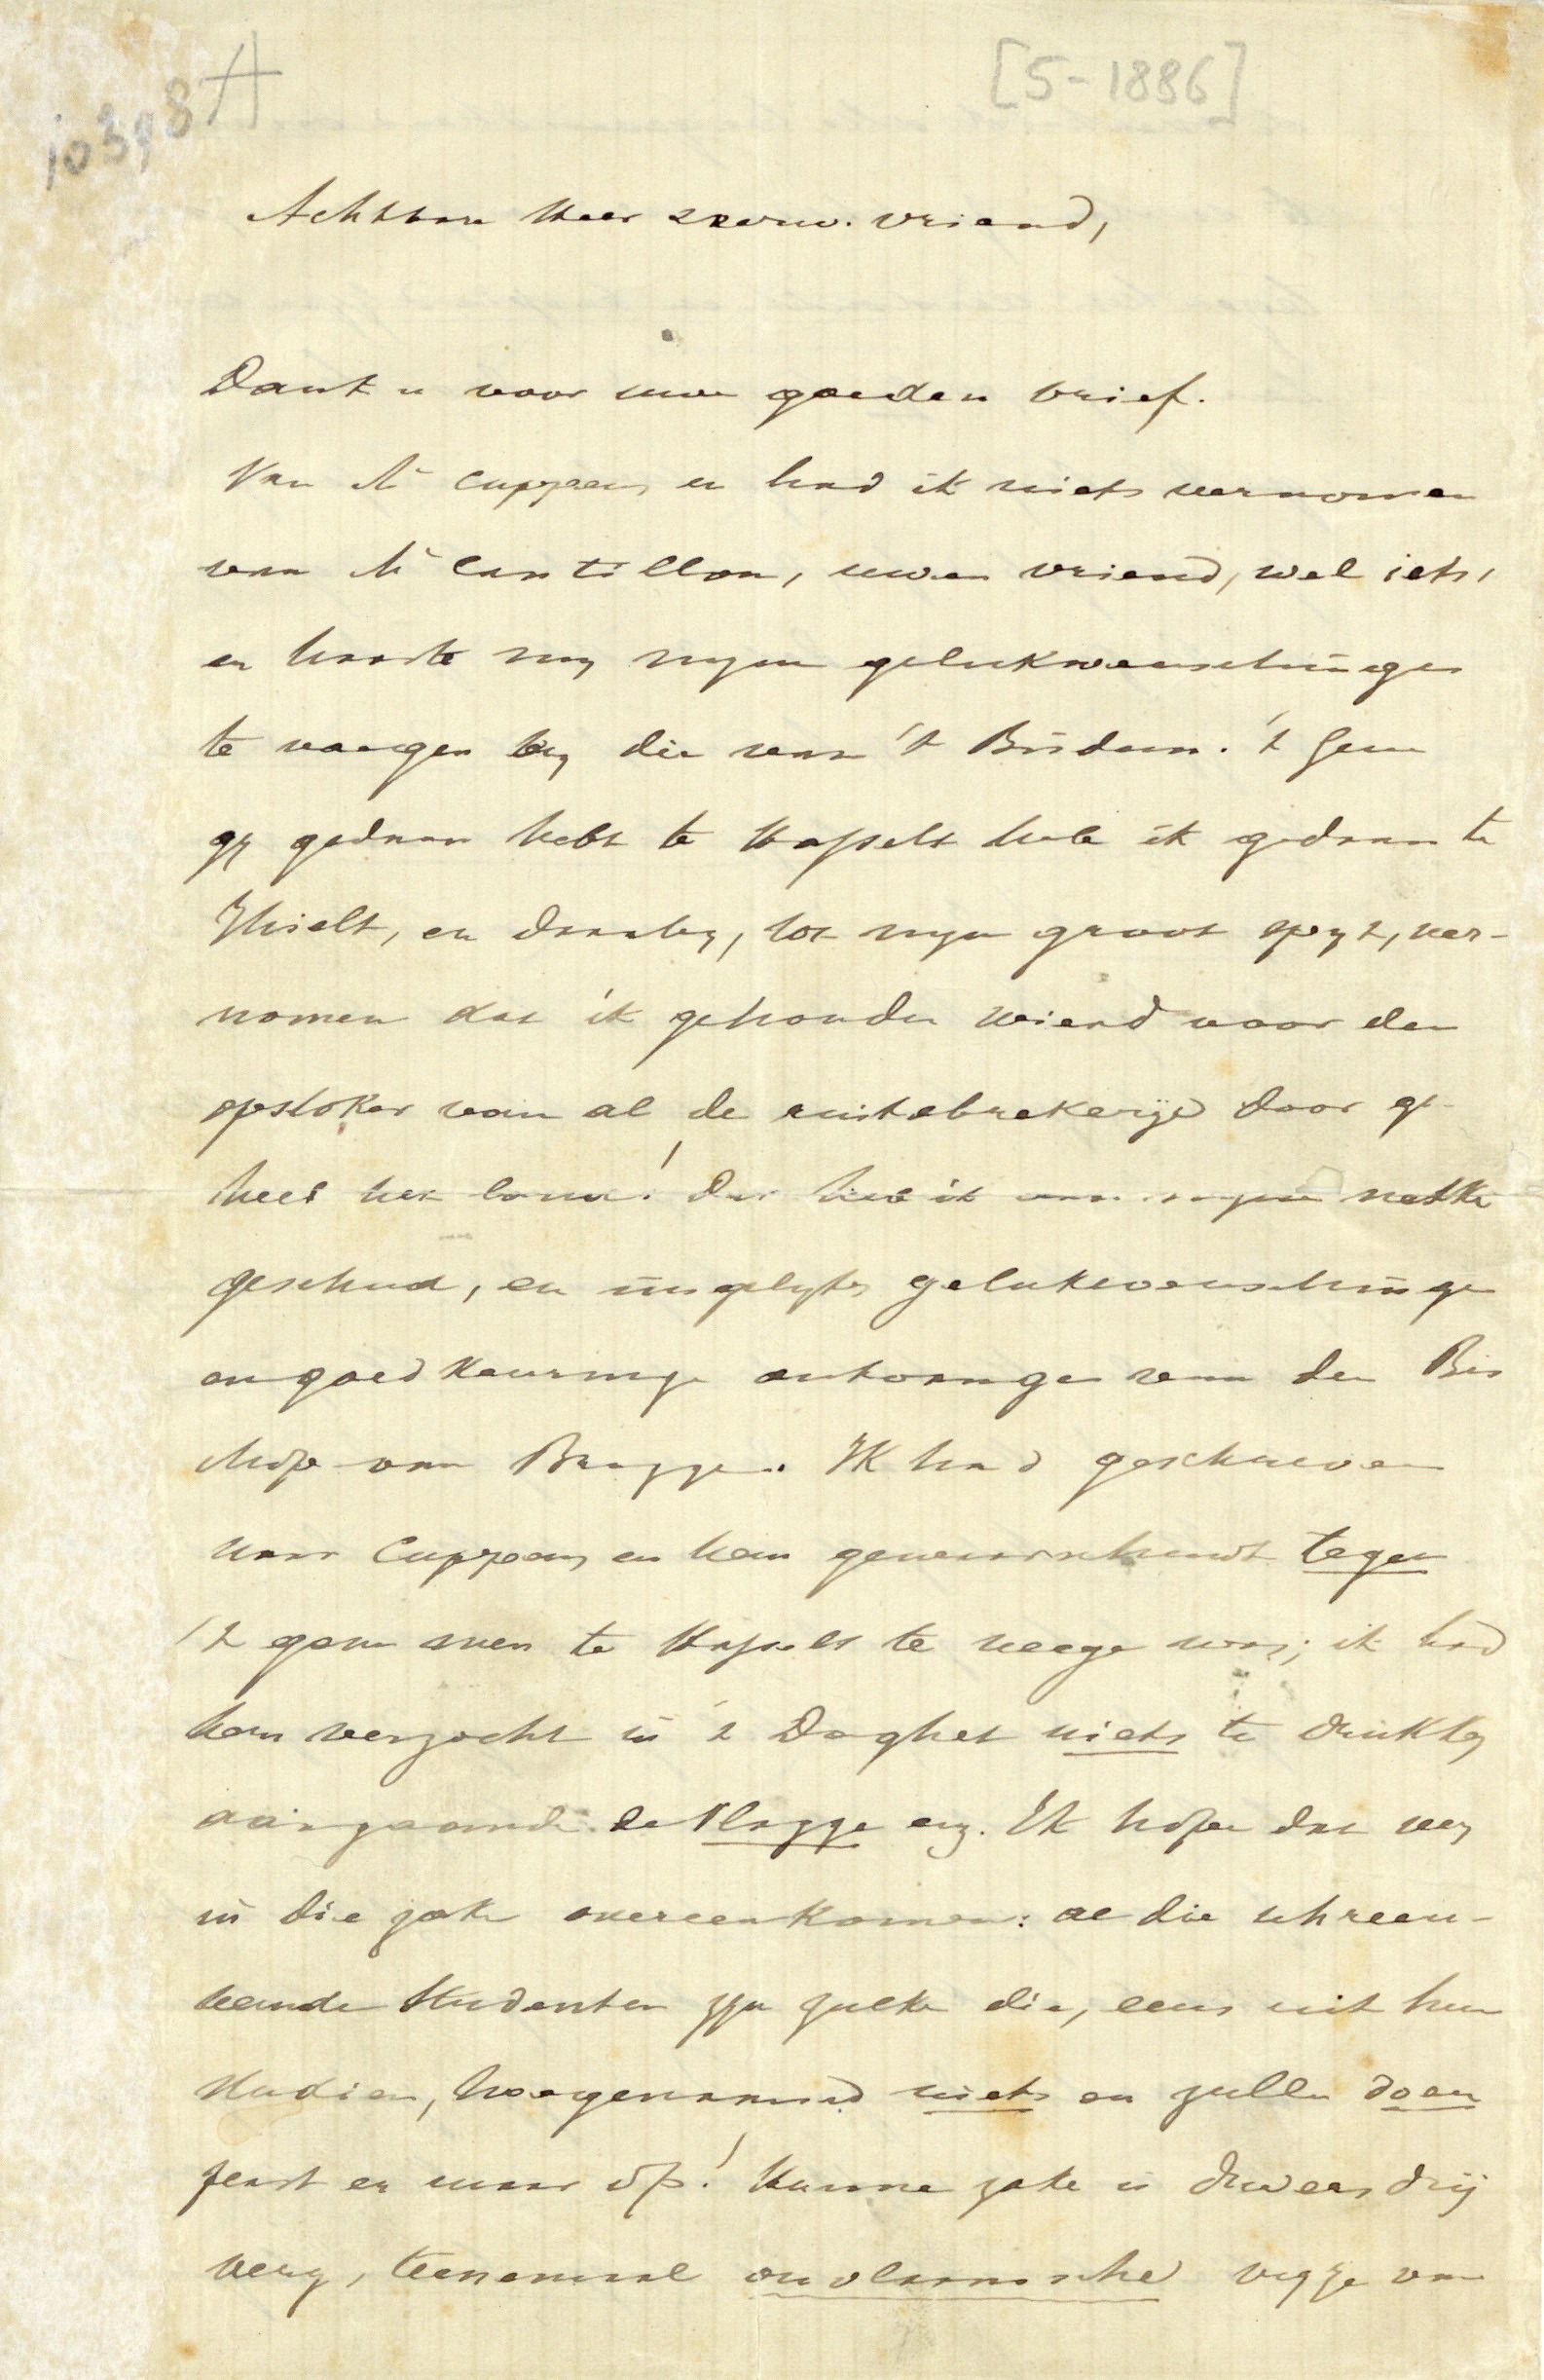 10398A
[5-1886]
Achtbare Heer & eerw. vriend,
Dank u voor uwen goeden brief.
Van Mr Cuppens en had ik niets vernomen
van Mr Cantillon, uwen vriend, wel iets,
en haaste my myne gelukwenschingen
te voegen by die van 't Bisdom. 't Gene
gy gedaan hebt te Hasselt heb ik gedaan te
Thielt, en daarby, tot myn groot spyt, ver-
nomen dat ik gehouden wierd voor den
opstoker van al de rustebrekerije door ge-
heel het land! Dat heb ik van myne nekke
geschud, en insgelyks gelukwenschinge
en goedkeuringe ontvangen van den Bis
schop van Brugge. Ik had geschreven
naar Cuppens en hem gewaarschuwd tegen
't gene men te Hasselt te weege was; ik had
hem verzocht in 't Daghet niets te drukken
aangaande de Vlagge enz. Ik hope dat wy
in die zake overeenkomen: al die schreeu-
wende studenten zyn zulke die, eens uit hun
studien, hoegenaamd niets en zullen doen
peist er maar op! Hunne zake is dweersdrij
very, teenemaal onvlaamsche vyze van